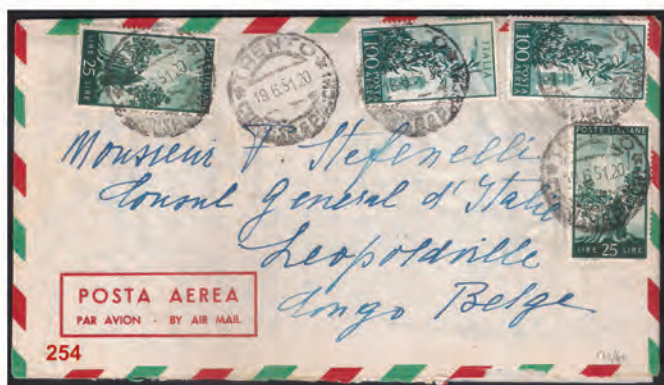 25 LIRE
TRENTO
19.6.51.20
100
100
ITALIA
POSTE ITALIANE
LIRE 25 LIRE
Monsieur P. Stefenelli
Consul General d'Italie
Leopoldville
Congo Belge
POSTA AEREA
PAR AVION - BY AIR MAIL
254